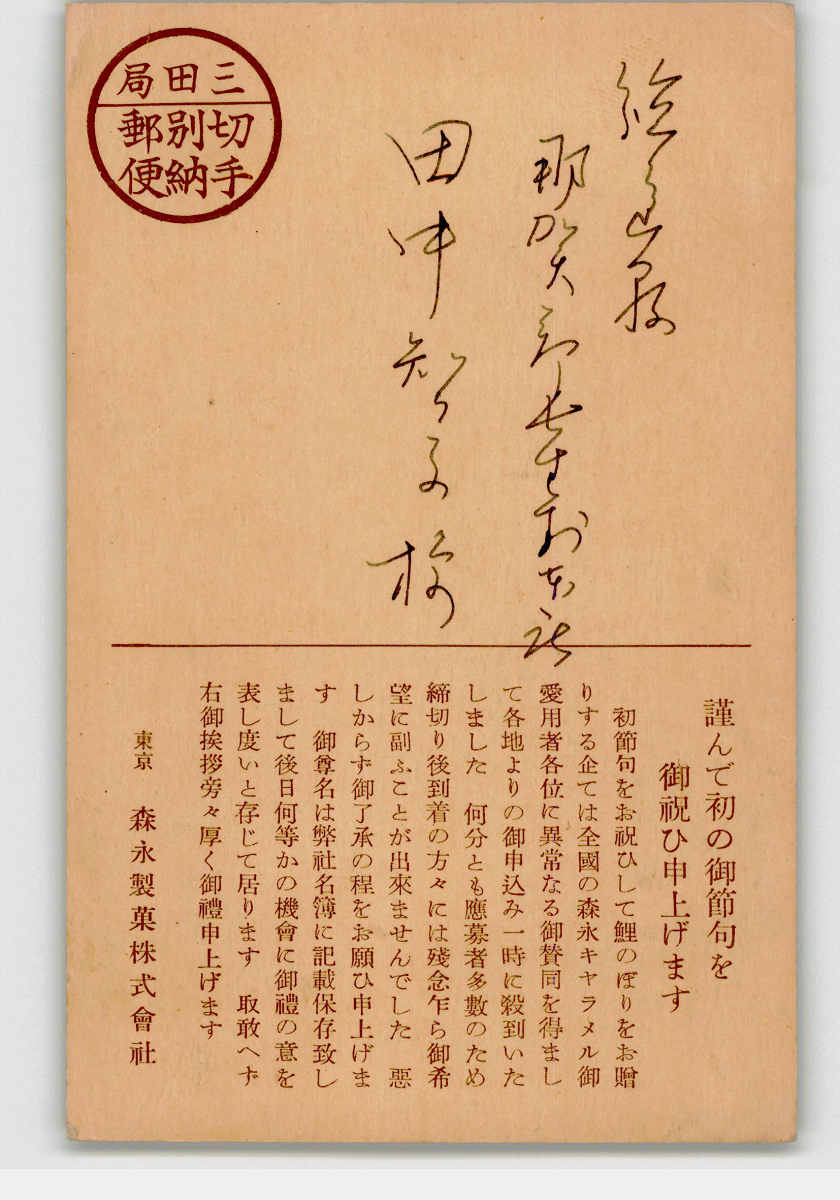 三田局
切手
別納
郵便
那賀郡長生村本庄
田中
様
謹んで初の御節句を
御祝ひ申上げます
初節句をお祝ひして鯉のぼりをお贈
りする企ては全國の森永キヤラメル御
愛用者各位に異常なる御賛同を得まし
て各地よりの御申込み一時に殺到いた
しました 何分とも應募者多數のため
締切り後到着の方々には殘念乍ら御希
望に副ふことが出來ませんでした 惡
しからず御了承の程をお願ひ申上げま
す 御尊名は弊社名簿に記載保存致し
まして後日何等かの機會に御禮の意を
表し度いと存じて居ります 取敢へず
右御挨拶旁々厚く御禮申上げます
東京 森永製菓株式會社